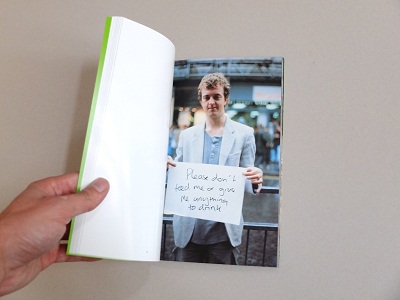 Please don't
feed me or give
me anything
to drink